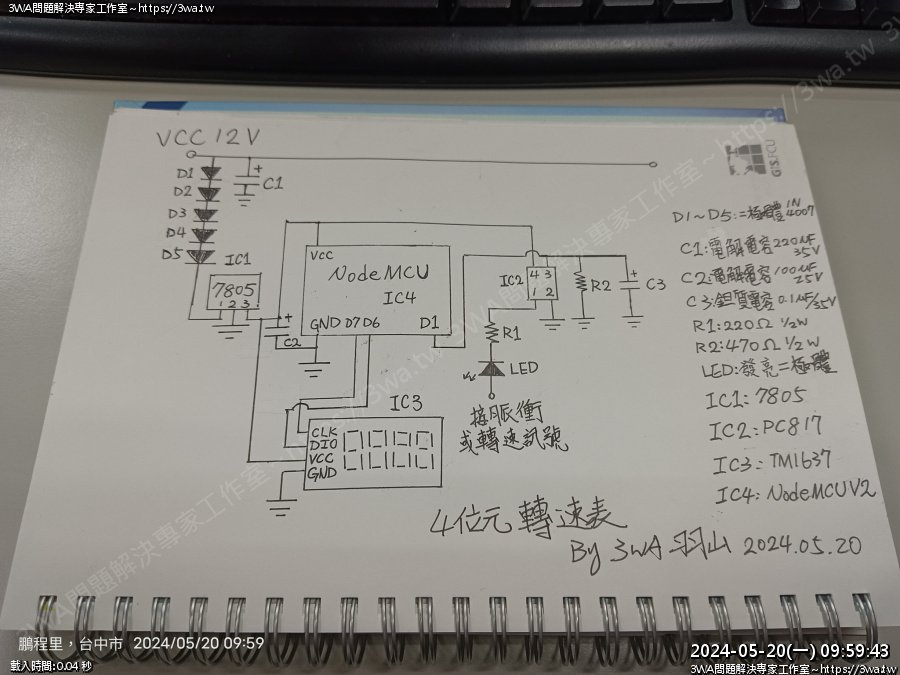 3WA問題解決專家工作室~https://3wa.tw
3WA問題解決專家工作室~https://3wa.tw
3WA問題解決專家工作室~https://3wa.tw
GIS.FCU
VCC 12V
D1
D2
D3
D4
D5
C1
IC1
7805
1 2 3
VCC
NodeMCU
IC4
GND D7 D6 D1
C2
IC2
4 3
1 2
R2
C3
R1
LED
接脈衝
或轉速訊號
IC3
CLK
DIO
VCC
GND
D1~D5:二極體 1N4007
C1:電解電容220μF 35V
C2:電解電容100μF 25V
C3:鉭質電容0.1μF/35V
R1:220Ω ½W
R2:470Ω ½W
LED:發亮二極體
IC1:7805
IC2:PC817
IC3:TM1637
IC4:NodeMCUV2
4位元轉速表
By 3WA 羽山 2024.05.20
鵬程里,台中市 2024/05/20 09:59
載入時間:0.04 秒
2024-05-20(一) 09:59:43
3WA問題解決專家工作室~https://3wa.tw